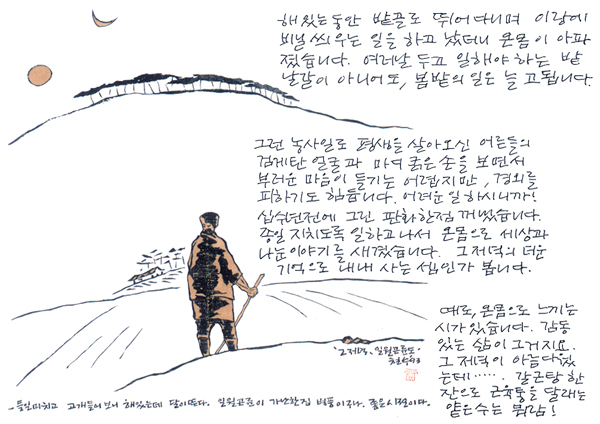 해 있는 동안 밭골로 뛰어다니며 이랑에
비닐 씌우는 일을 하고 났더니 온몸이 아파
졌습니다. 여러날 두고 일해야 하는 밭
날같이 아니어도, 봄밭의 일은 늘 고됩니다.
그런 농사일로 평생을 살아오신 어른들의
검게탄 얼굴과 마디 굵은 손을 보면서
부러운 마음이 들기는 어렵지만, 경외를
피하기도 힘듭니다. 어려운 일 하시니까!
십수년전에 그린 판화 한점 꺼냈습니다.
종일 지치도록 일하고 나서 온몸으로 세상과
나눈 이야기를 새겼습니다. 그 저녁의 더운
기억으로 내내 사는 셈인가 봅니다.
때로, 온몸으로 느끼는
시가 있습니다. 감동
있는 삶이 그거지요.
그 저녁이 아름다웠
는데······. 갈근탕 한
잔으로 근육통을 달래는
얕은수는 뭐람!
'그 저녁, 일월곤륜도'
- 들일 마치고 고개들어 보니 해 있는데 달이 떴다. 일월곤륜이 가난한 집 병풍이구나. 좋은 시절이다.